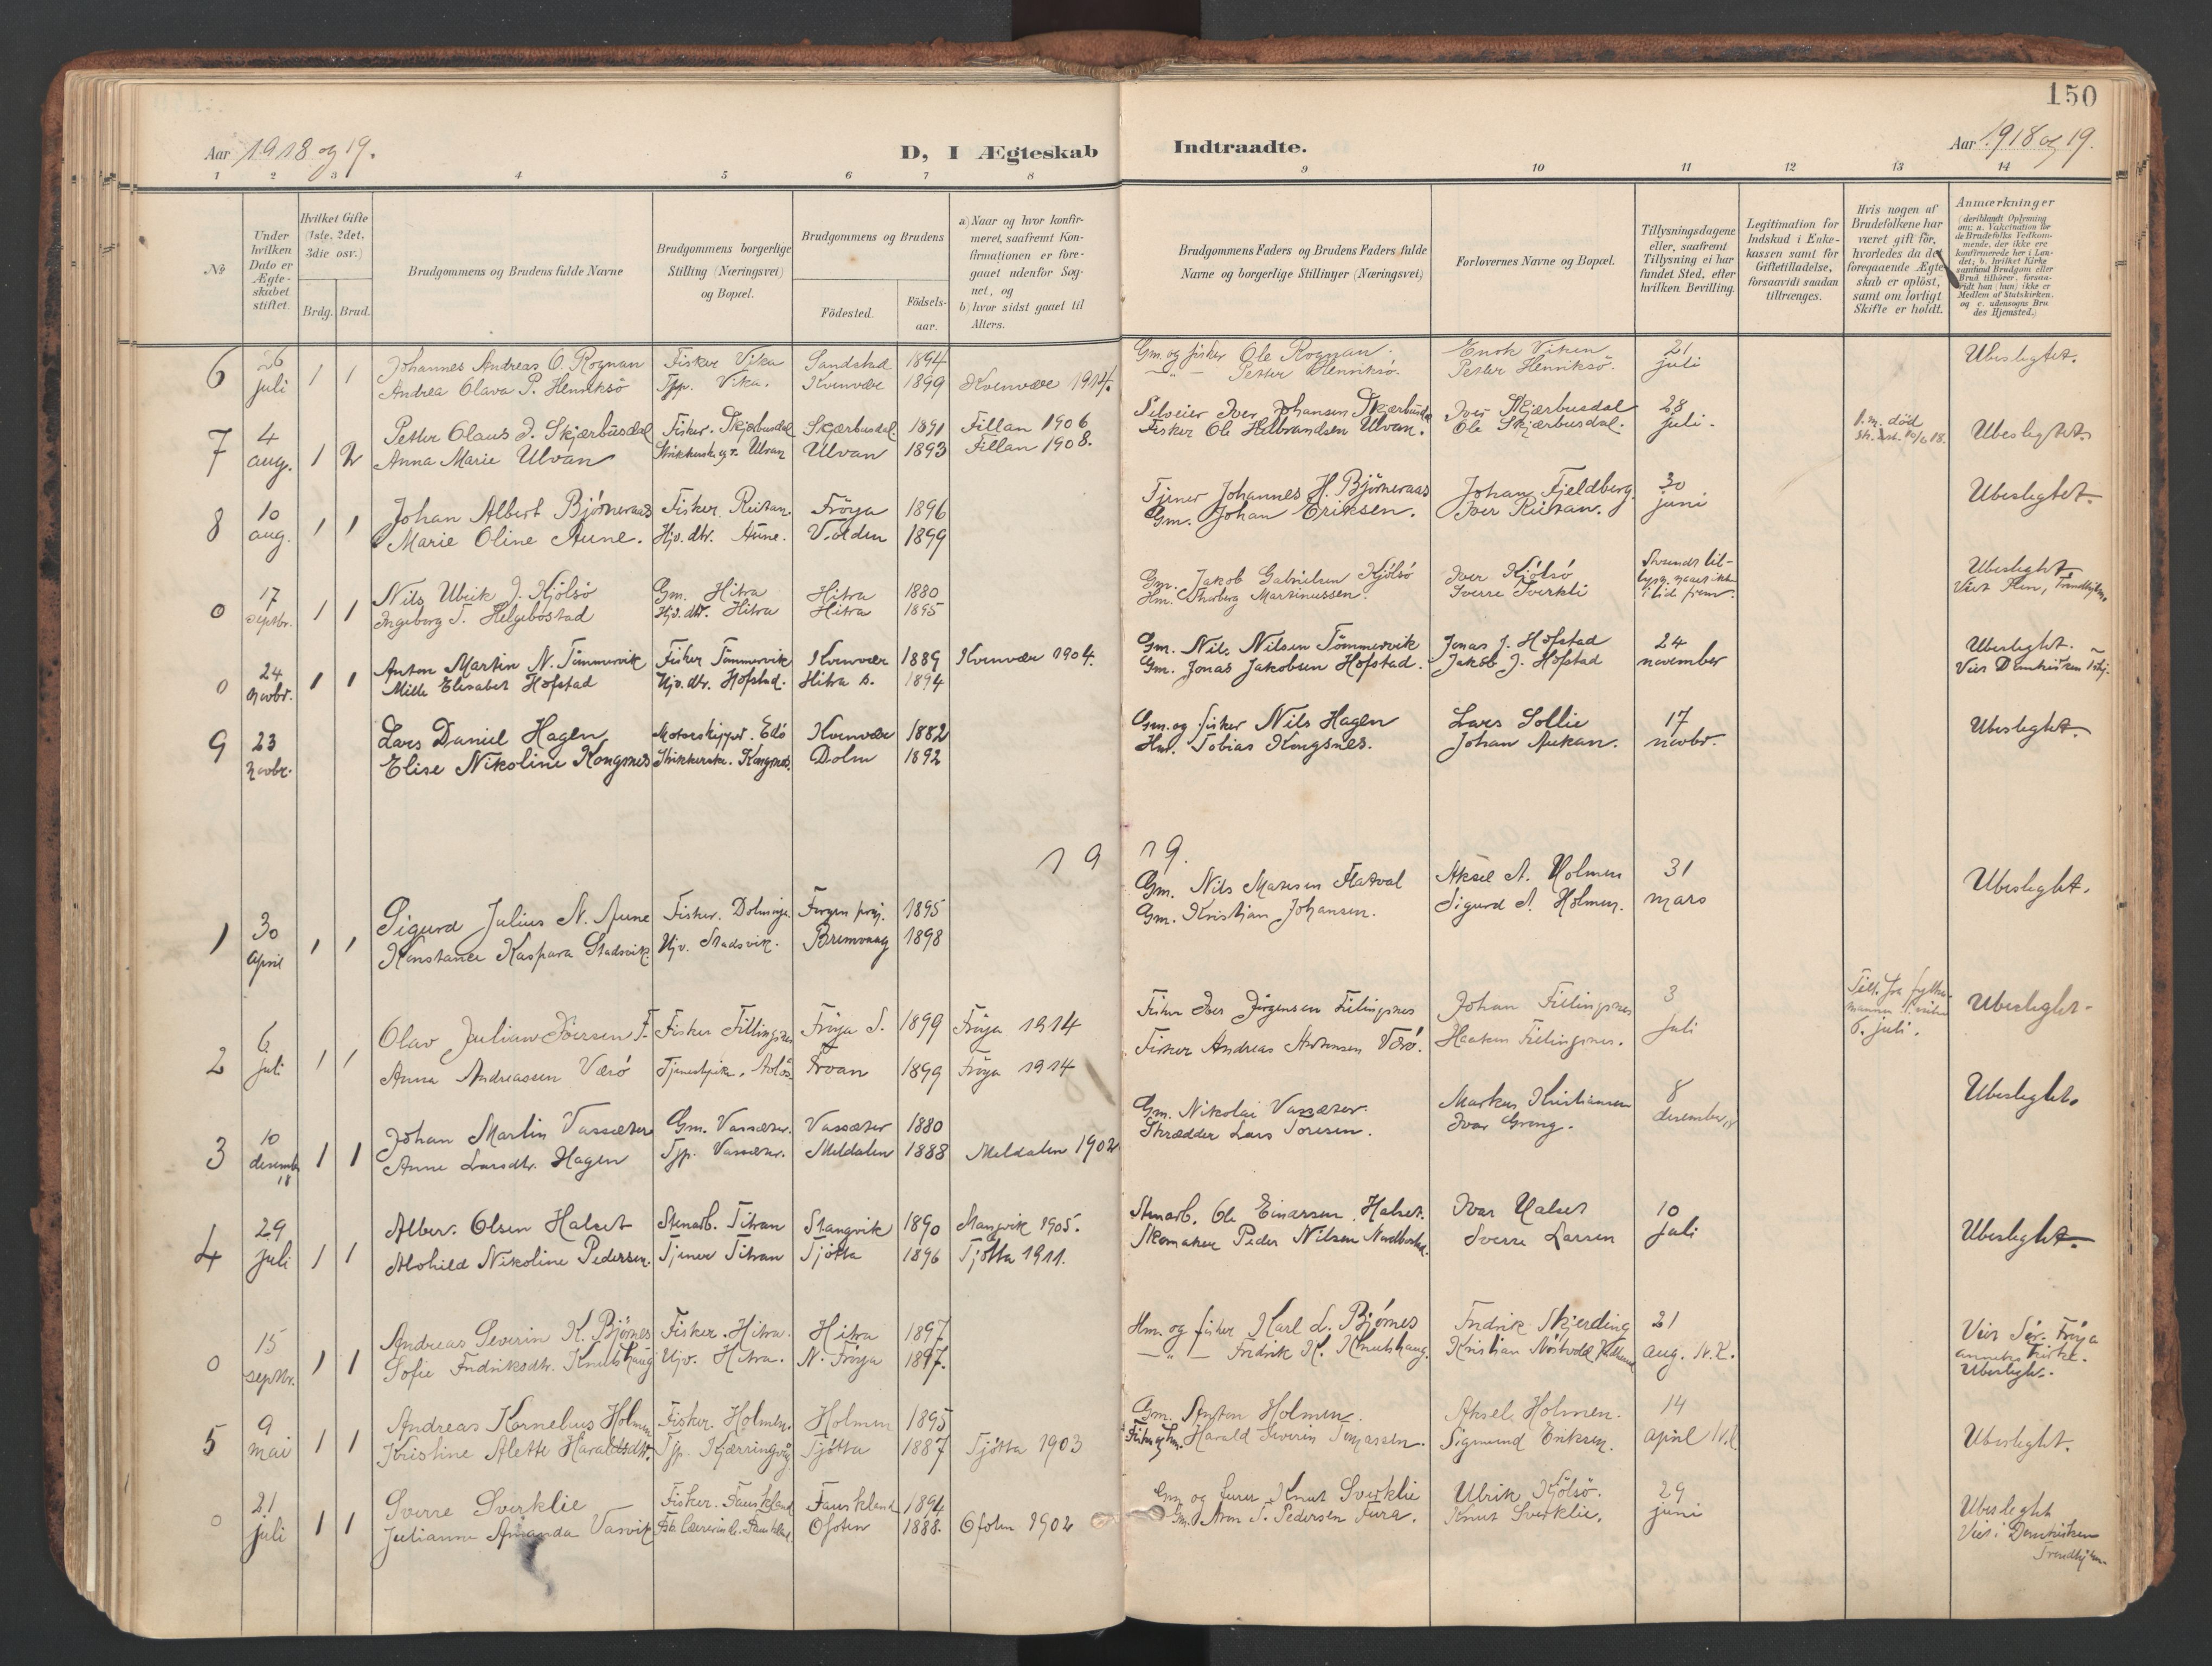 150
Aar 1918 og 19.
D, I Ægteskab Indtraadte.
Aar 1918 og 19.
1 2 3 4 5 6 7 8 9 10 11 12 13 14
No
Under hvilken Dato er Ægteskabet stiftet.
Hvilket Gifte (1ste, 2det, 3die osv.)
Brdg. Brud.
Brudgommens og Brudens fulde Navne
Brudgommens borgerlige Stilling (Næringsvei) og Bopæl.
Brudgommens og Brudens
Födested.
Födselsaar.
a) Naar og hvor konfirmeret, saafremt Konfirmationen er foregaaet udenfor Sognet, og
b) hvor sidst gaaet til Alters.
Brudgommens Faders og Brudens Faders fulde Navne og borgerlige Stillinger (Næringsvei)
Forlovernes Navne og Bopæl.
Tillysningsdagene eller, saafremt Tillysning ei har fundet Sted, efter hvilken Bevilling.
Legitimation for Indskud i Enkekassen samt for Giftetilladelse, forsaavidt saadan tiltrænges.
Hvis nogen af Brudefolkene har været gift för, hvorledes da det foregaaende Ægteskab er oplöst, samt om lovligt Skifte er holdt.
Anmærkninger
(deriblandt Oplysning om: a. Vakcination for de Brudefolks Vedkommende, der ikke ere konfirmerede her i Landet; b. hvilket Kirkesamfund Brudgom eller Brud tilhörer, forsaavidt han (hun) ikke er Medlem af Statskirken, og c. udensogns Brudes Hjemsted.)
6 26 juli 1 1 Johannes Andreas O. Rognan Fisker Vika Sandstad 1894 Gm. og fisker Ole Rognan. Enok Viken 21 juli Ubeslegtet.
Andrea Olava P. Henriksö Tjp. Vika. Kvenvær 1899 Kvenvær 1914. — " — Petter Henriksö. Petter Henriksö.
7 4 aug. 1 2 Petter Olaus J. Skjærbusdal Fisker. Skjærbusdal Skjærbusdal 1891 Fillan 1906 Selveier Iver Johansen Skjærbusdal Iver Skjærbusdal 28 juli. 1. m. død Ubeslegtet.
Anna Marie Ulvan Ulvan Ulvan 1893 Fillan 1908. Fisker Ole Hilbrandsen Ulvan. Ole Skjærbusdal.
8 10 aug. 1 1 Johan Albert Bjørneraas Fisker. Reitan. Fröya 1896 Tjener Johannes H. Bjørneraas Johan Fjeldberg 30 juni Ubeslegtet.
Marie Oline Aune. Hjv. dtr. Aune. 1899 Gm. Johan Eriksen. Iver Reitan.
0 17 septbr. 1 1 Nils Ulrik J. Kjölsö Gm. Hitra Hitra 1880 Gm. Jakob Gabrielsen Kjölsö Iver Kjölsö Ubeslegtet
Ingeborg T. Helgebostad Hjv. dtr. Hitra Hitra 1895 Hm. Thorberg Martinussen. Sverre Sverkli
0 24 novbr. 1 1 Anton Martin N. Tömmervik Fisker Tömmervik Kvenvær 1889 Kvenvær 1904. Gm. Nils Nilsen Tömmervik Jonas J. Hofstad 24 november Ubeslegtet.
Elisabet Hofstad Hjv. dtr. Hofstad. Hitra s. 1894 Gm. Jonas Jakobsen Hofstad. Jakob J. Hofstad
9 23 novbr. Lars Daniel Hagen Motorskipper. Edö Kvenvær 1882 Gm. og fisker Nils Hagen Lars Sollie 17 novbr. Ubeslegtet.
Elise Nikoline Kongsnes Kongsnes. Dolm 1892 Hm. Tobias Kongsnes. Johan Aukan.
19 19.
1 30 April 1 1 Sigurd Julius N. Aune Fisker. Dolmöya 1895 Gm. Nils Flatval Aksel A. Holmen 31 mars Ubeslegtet.
Konstance Kaspara Stadsvik Hjv. Stadsvik. Bremvaag 1898 Gm. Kristian Johansen. Sigurd A. Holmen.
2 6 juli 1 1 Olav Julian Iversen F. Fisker Fillingsnes Fröya S. 1899 Fröya 1914 Fisker Iver Jörgensen Fillingsnes Johan Fillingsnes 3 juli 6. juli. Ubeslegtet.
Anna Andreassen Værö Froan 1899 Fröya 1914 Fisker Andreas Værö. Haakon Fillingsnes.
3 10 desemb. 18 1 1 Johan Martin Vassæter Gm. Vassæter. Vassæter 1880 Gm. Nikolai Vassæter. Markus Kristiansen 8 desember 18 Ubeslegtet.
Anne Larsdtr. Hagen Tjp. Vassæter. Meldalen 1888 Meldalen 1902 Skrædder Lars Toresen. Ivar Grong.
4 29 juli 1 1 Albert Olsen Halset Stenarb. Titran Stangvik 1890 Stangvik 1905. Stenarb. Ole Einarsen Halset. Ivar Halset 10 juli Ubeslegtet.
Alvhild Nikoline Pedersen. Tjener Titran Tjötta 1896 Tjötta 1911. Skomaker Peder Nilsen Sverre Larsen
0 15 septbr. 1 1 Andreas Severin K. Bjørnes Fisker. Hitra. Hitra 1897 Hm. og fisker Karl L. Bjørnes Fredrik Skjerding 21 aug. N.K. Viet Sör-Fröya annekskirke. Ubeslegtet.
Sofie Fredriksdtr. Knutshaug Hjv. Hitra. N. Fröya 1897. — " — Fredrik K. Knutshaug. Kristian
5 9 mai 1 1 Andreas Kornelius Holmen Fisker. Holmen. Holmen 1895 Gm. Anton Holmen. Aksel Holmen. 14 april Ubeslegtet.
Kristine Alette Haraldsdtr. Tjp. Kjærringvåg Tjötta 1887 Tjötta 1903 Harald Severin Tomassen. Sigmund Eriksen.
0 21 juli 1 1 Sverre Sverklie Fisker. Fauskland Fauskland 1894 Gm. og lurer Knut Sverklie Ulrik Kjölsö. 29 juni Ubeslegtet
Julianne Amanda Vasvik Ofoten 1888. Ofoten 1902 Gm. Aron T. Pedersen Fura. Knut Sverklie. Viet i Domkirken Trondhjem